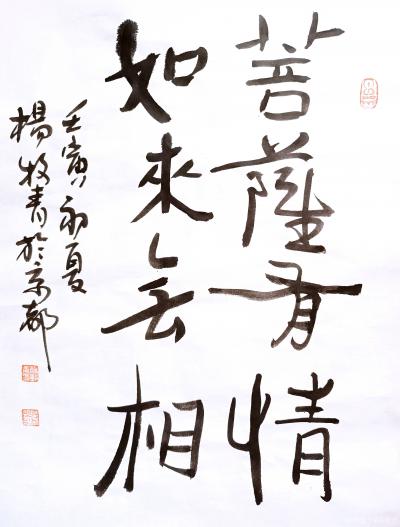 菩薩有情
如來无相
壬寅初夏
楊牧青於京都